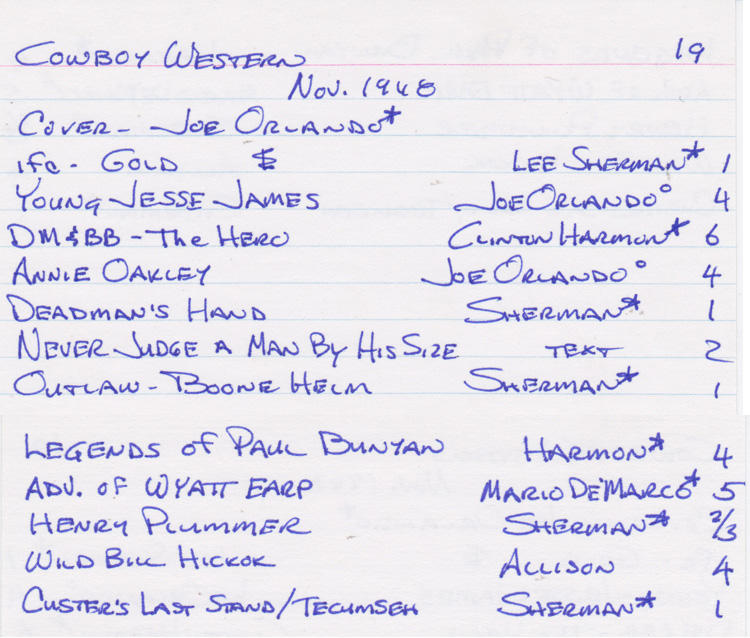 Cowboy Western 19
Nov. 1948
Cover - Joe Orlando*
ifc - Gold $ Lee Sherman* 1
Young Jesse James Joe Orlando° 4
DM & BB - The Hero Clinton Harmon* 6
Annie Oakley Joe Orlando° 4
Deadman's Hand Sherman* 1
Never Judge a Man By His Size text 2
Outlaw - Boone Helm Sherman* 1
Legends of Paul Bunyan Harmon* 4
Adv. of Wyatt Earp Mario DeMarco* 5
Henry Plummer Sherman* 2/3
Wild Bill Hickok Allison 4
Custer's Last Stand/Tecumseh Sherman* 1